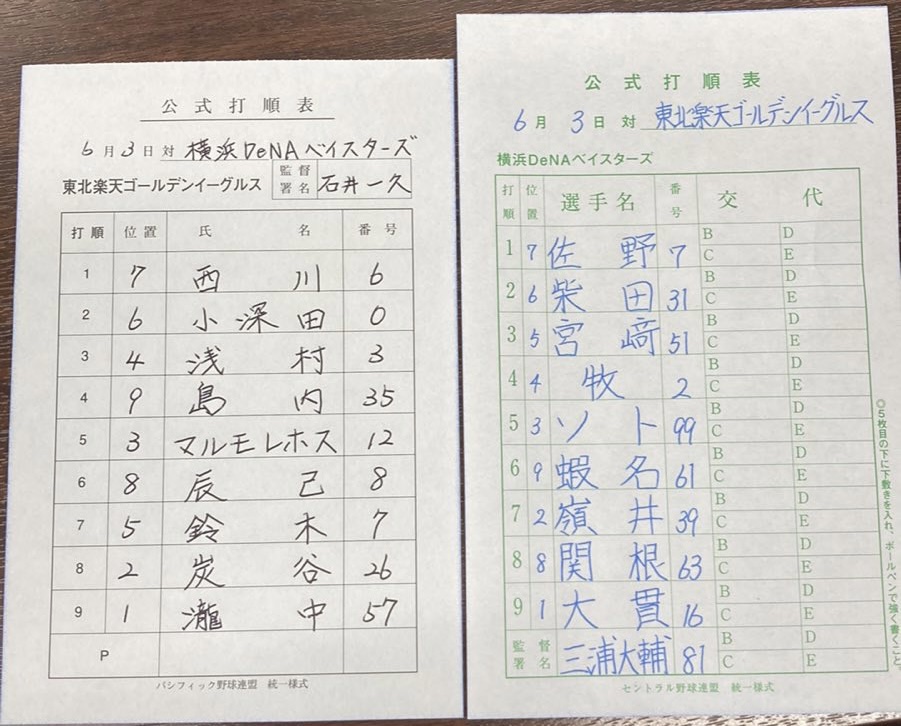 公式打順表
6月3日対 横浜DeNAベイスターズ
東北楽天ゴールデンイーグルス 監督署名 石井一久
打順 位置 氏名 番号
1 7 西川 6
2 6 小深田 0
3 4 浅村 3
4 9 島内 35
5 3 マルモレホス 12
6 8 辰己 8
7 5 鈴木 7
8 2 炭谷 26
9 1 瀧中 57
P
パシフィック野球連盟 統一様式
公式打順表
6月3日対 東北楽天ゴールデンイーグルス
横浜DeNAベイスターズ
打順 位置 選手名 番号 交代
1 7 佐野 7 B D
C E
2 6 柴田 31 B D
C E
3 5 宮﨑 51 B D
C E
4 4 牧 2 B D
C E
5 3 ソト 99 B D
C E
6 9 蝦名 61 B D
C E
7 2 嶺井 39 B D
C E
8 8 関根 63 B D
C E
9 1 大貫 16 B D
C E
監督署名 三浦大輔 81 B D
C E
セントラル野球連盟 統一様式
◎5枚目の下に下敷きを入れ、ボールペンで強く書くこと。